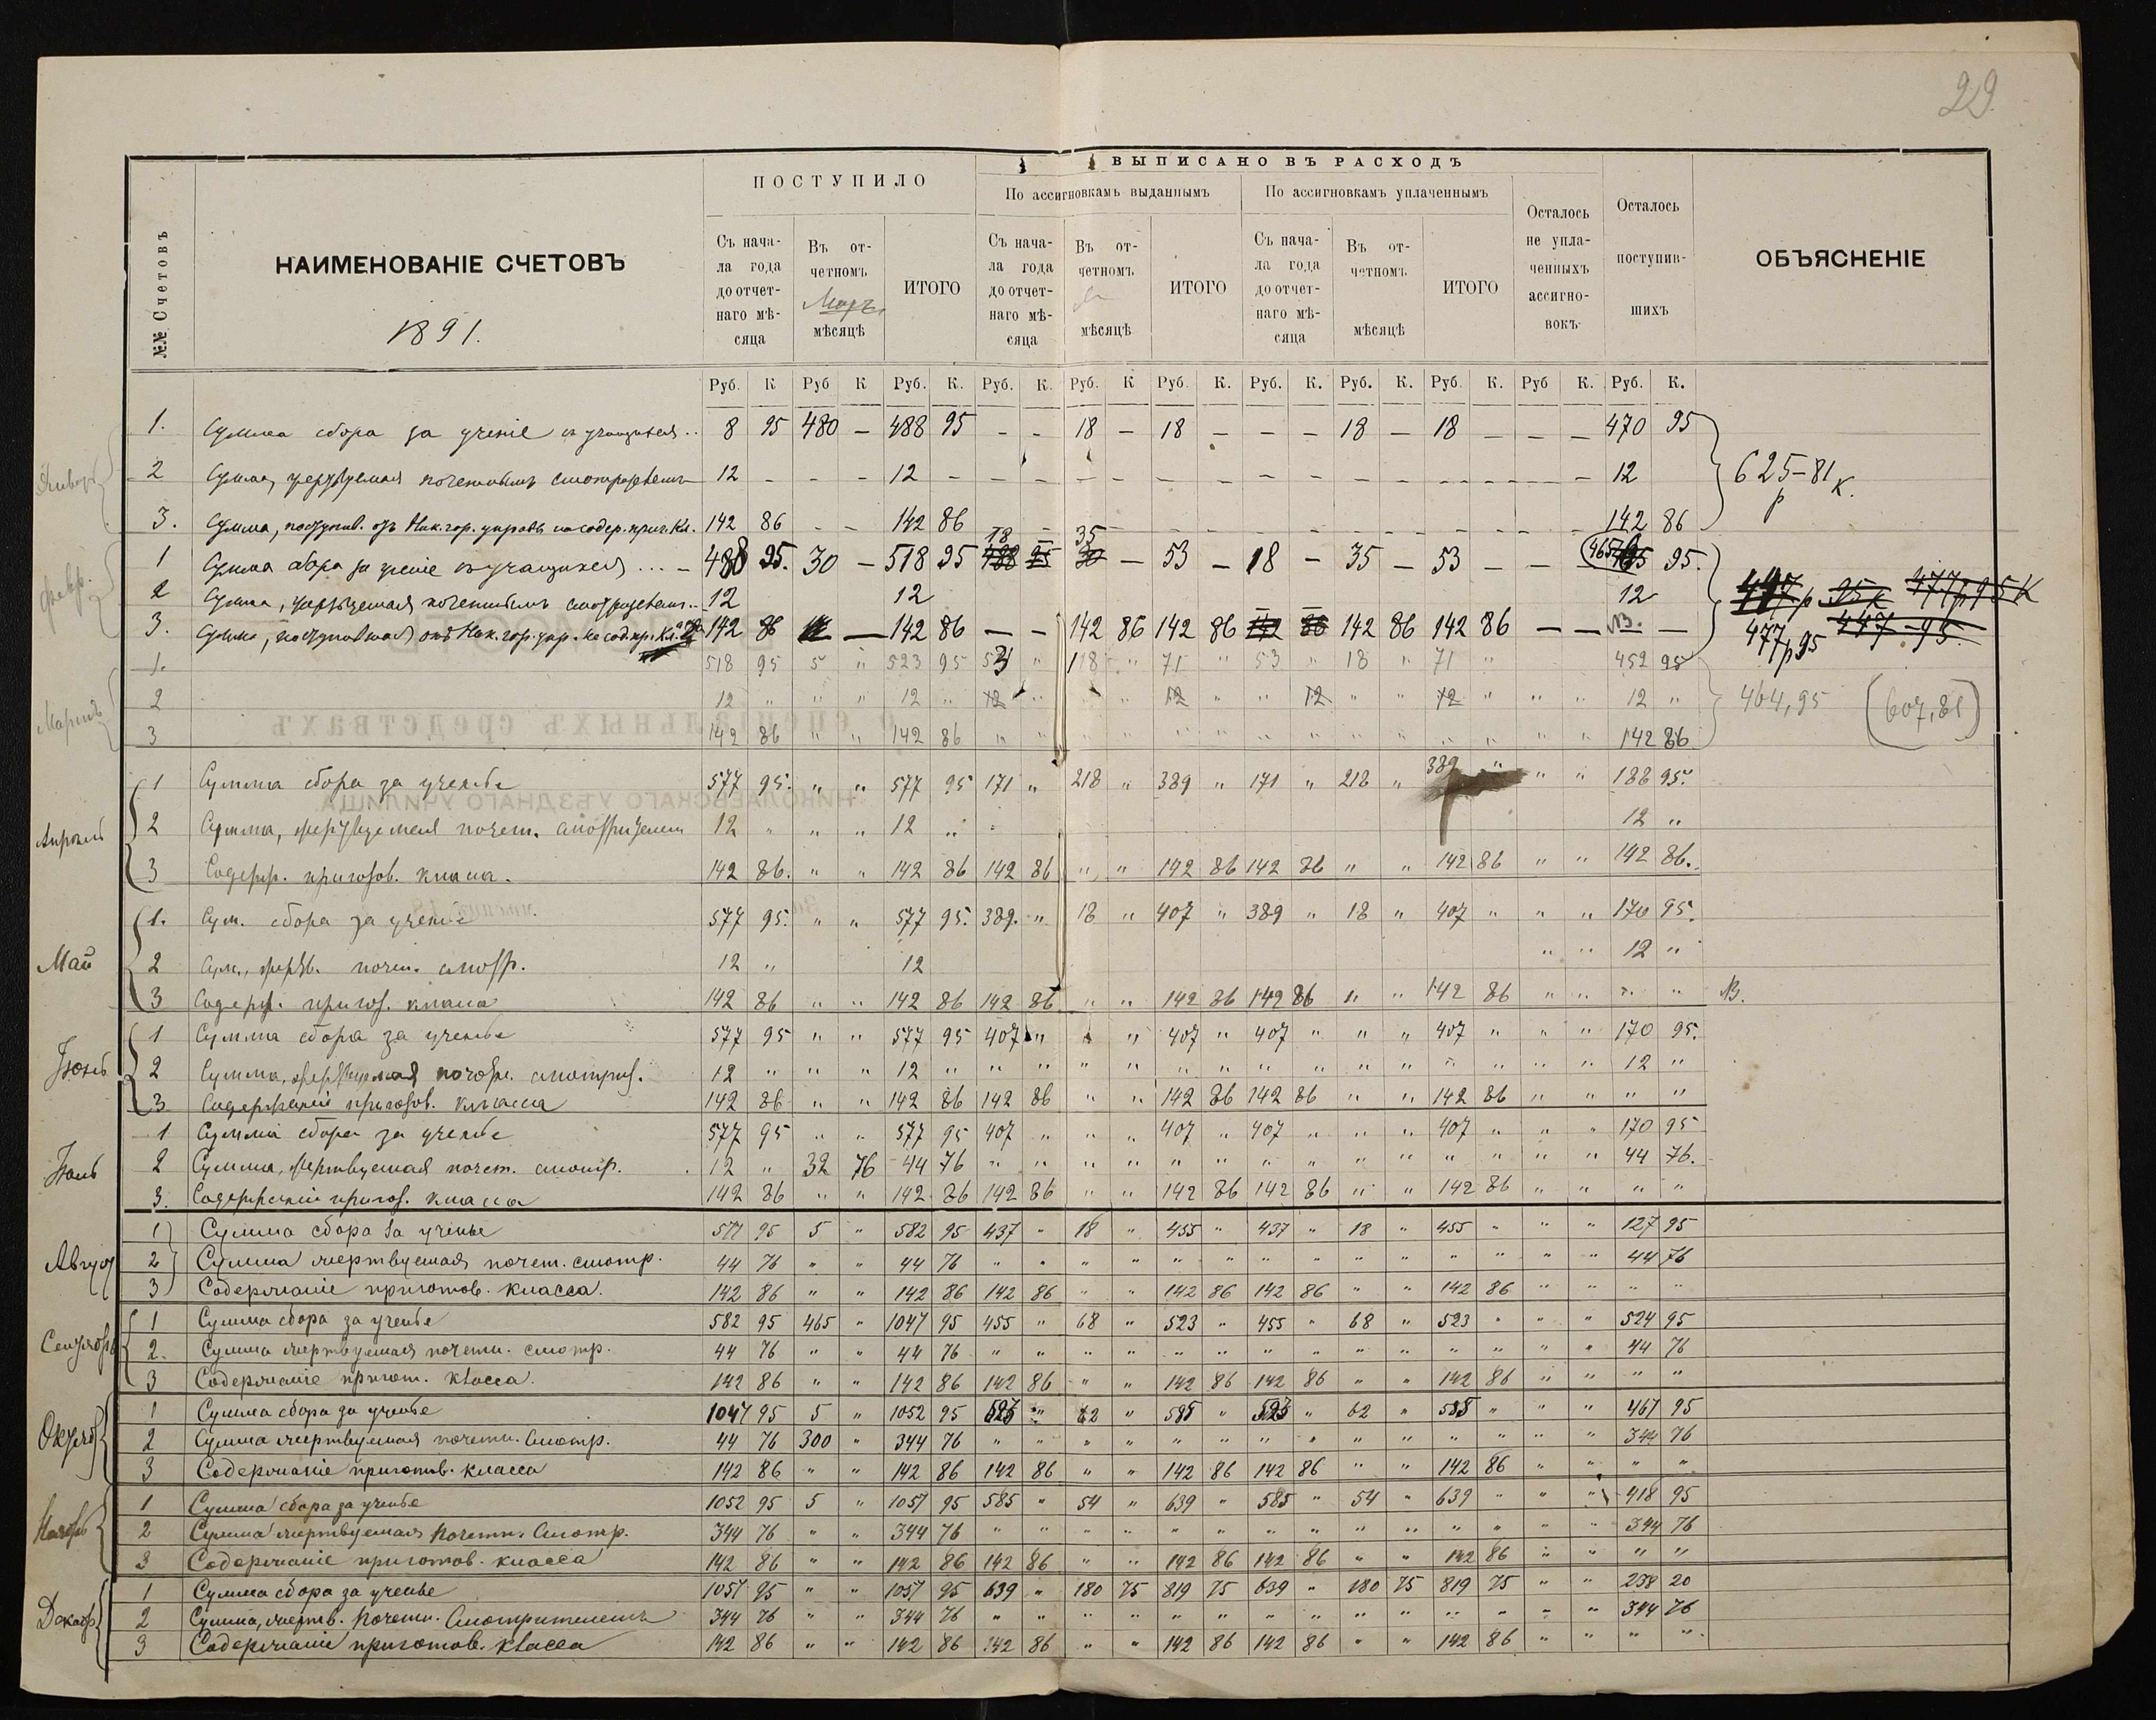 29
ПОСТУПИЛО
ВЫПИСАНО ВЪ РАСХОДЪ
По ассигновкамъ выданнымъ
По ассигновкамъ уплаченнымъ
№№ Счетовъ
НАИМЕНОВАНІЕ СЧЕТОВЪ
1891.
Съ нача-
ла года
до отчет-
наго мѣ-
сяца
Въ от-
четномъ
мѣсяцѣ
ИТОГО
Съ нача-
ла года
до отчет-
наго мѣ-
сяца
Въ от-
четномъ
мѣсяцѣ
ИТОГО
Съ нача-
ла года
до отчет-
наго мѣ-
сяца
Въ от-
четномъ
мѣсяцѣ
ИТОГО
Осталось
не упла-
ченныхъ
ассигно-
вокъ
Осталось
поступив-
шихъ
ОБЪЯСНЕНІЕ
Руб. К Руб К Руб. К. Руб. К. Руб. К Руб. К. Руб. К. Руб. К. Руб. К. Руб К. Руб. К.
Январь
1. Сумма сбора за ученіе 8 95 480 — 488 95 — — 18 — 18 — — — 18 — 18 — — — 470 95
2 Сумма, 12 — — — 12 — — — — — — — — — — — — — — — 12
3. Сумма, 142 86 — — 142 86 — — — — — — — — — — — — — 142 86
625 р — 81 к.
Февр.
1 Сумма сбора за ученіе 488 95. 30 — 518 95 18 35 — 53 — 18 — 35 — 53 — — — 465 95.
2 Сумма, 12 12 12
3. Сумма, 142 86 — 142 86 — — 142 86 142 86 142 86 142 86 — — —
477 р 95
Мартъ
1. 518 95 5 " 523 95 53 " 18 " 71 " 53 " 18 " 71 " 452 95
2 12 " " " 12 " 12 " " " 12 " " 12 " " 12 " " " 12 "
3 142 86 " " 142 86 " " " " " " " " " " " " " " 142 86
464,95 (607,81)
Апрель
1 Сумма сбора за ученье 577 95. " " 577 95 171 " 218 " 389 " 171 " 218 " 389 " " " 188 95.
2 Сумма, 12 " " " 12 " 12 "
3 Содерж. приготов. класса. 142 86. " " 142 86 142 86 " " 142 86 142 86 " " 142 86 " " 142 86.
Май
1. Сум. сбора за ученіе 577 95. " " 577 95. 389. " 18 " 407 " 389 " 18 " 407 " " " 170 95.
2 Сум., почет. смотр. 12 " 12 " " 12 "
3 Содерж. пригот. класса 142 86 " " 142 86 142 86 " " 142 86 142 86 " " 142 86 " " " "
Іюнь
1 Сумма сбора за ученье 577 95 " " 577 95 407 " " " 407 " 407 " " " 407 " " " 170 95.
2 Сумма, 12 " " " 12 " " " " " " " " " " " " " " " 12 "
3 Содержаніе приготов. класса 142 86 " " 142 86 142 86 " " 142 86 142 86 " " 142 86 " " " "
Іюль
1 Сумма сбора за ученье 577 95 " " 577 95 407 " " " 407 " 407 " " " 407 " " " 170 95
2 Сумма, жертвуемая почет. смотр. 12 " 32 76 44 76 " " " " " " " " " " " " " " 44 76.
3. Содержаніе пригот. класса 142 86 " " 142 86 142 86 " " 142 86 142 86 " " 142 86 " " " "
Август
1 Сумма сбора за ученье 577 95 5 " 582 95 437 " 18 " 455 " 437 " 18 " 455 " " " 127 95
2 Сумма жертвуемая почет. смотр. 44 76 " " 44 76 " " " " " " " " " " " " " " 44 76
3 Содержаніе приготов. класса. 142 86 " " 142 86 142 86 " " 142 86 142 86 " " 142 86 " " " "
Сентябрь
1 Сумма сбора за ученье 582 95 465 " 1047 95 455 " 68 " 523 " 455 " 68 " 523 " " " 524 95
2. Сумма жертвуемая почетн. смотр. 44 76 " " 44 76 " " " " " " " " " " " " " " 44 76
3 Содержаніе пригот. класса. 142 86 " " 142 86 142 86 " " 142 86 142 86 " " 142 86 " " " "
Октяб
1 Сумма сбора за ученье 1047 95 5 " 1052 95 523 " 62 " 585 " 523 " 62 " 585 " " " 467 95
2 Сумма жертвуемая почетн. смотр. 44 76 300 " 344 76 " " " " " " " " " " " " " " 344 76
3 Содержаніе приготов. класса 142 86 " " 142 86 142 86 " " 142 86 142 86 " " 142 86 " " " "
Ноябрь
1 Сумма сбора за ученье 1052 95 5 " 1057 95 585 " 54 " 639 " 585 " 54 " 639 " " " 418 95
2 Сумма жертвуемая Почетн. Смотр. 344 76 " " 344 76 " " " " " " " " " " " " " " 344 76
3 Содержаніе приготов. класса 142 86 " " 142 86 142 86 " " 142 86 142 86 " " 142 86 " " " "
Декабр
1 Сумма сбора за ученье 1057 95 " " 1057 95 639 " 180 75 819 75 639 " 180 75 819 75 " " 238 20
2 Сумма, жертв. Почетн. Смотрителемъ 344 76 " " 344 76 " " " " " " " " " " " " " " 344 76
3 Содержаніе приготов. класса 142 86 " " 142 86 142 86 " " 142 86 142 86 " " 142 86 " " " "